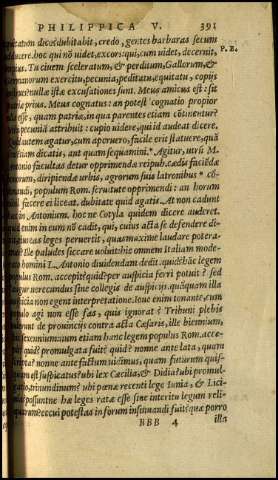 PHILIPPICA V. 391
equitatum dicas dubitabit, credo, gentes barbaras secum
adducere. hoc qui nō videt, excors: qui, cum videt, decernit,
P. E.
impius. Tu ciuem sceleratum, & perditum, Gallorum, &
Germanorum exercitu, pecunia, peditatu, equitatu, copijs
nullæ istæ excusationes sunt. Meus amicus est: sit
patriæ prius. Meus cognatus: an potest cognatio propior
vlla esse, quam patriæ, in qua parentes etiam cōtinentur?
pecuniā attribuit: cupio videre, qui id audeat dicere.
autem agatur, cum aperuero, facile erit statuere, quā
sententiam dicatis, aut quam sequamini. * Agitur, utrū M.
Antonio facultas detur opprimendæ reipub. cædis faciēdæ
bonorum, diripiendæ urbis, agrorum suis latronibus *
populum Rom. seruitute opprimendi: an horum
ei facere ei liceat. dubitate quid agatis. At non cadunt
in Antonium. hoc ne Cotyla quidem dicere auderet.
quid enim in eum nō cadit, qui, cuius acta se defendere di-
eius leges peruertit, quas maxime laudare potera-
Ille paludes siccare voluit: hic omnem Italiam mode-
homini L. Antonio diuidendam dedit. quid? hāc legem
populus Rom. accepit? quid? per auspicia ferri potuit? sed
augur verecundus sine collegis de auspicijs. quāquam illa
auspicia non egent interpretatione. Ioue enim tonante, cum
populo agi non esse fas, quis ignorat? Tribuni plebis
tulerunt de prouincijs contra acta Cæsaris, ille biennium,
sexennium. num etiam hanc legem populus Rom. acce-
pit? quid? promulgata fuit? quid? nonne ante lata, quam
scripta? nonne ante factum vidimus, quam futurum quis-
quam est suspicatus? ubi lex Cæcilia, & Didia? ubi promul-
gatio trinundinum? ubi pœna recenti lege Iunia, & Lici-
nia? possuntne hæ leges ratæ esse sine interitu legum reli-
quarum? eccui potestas in forum insinuandi fuit? quæ porro
BBB 4 illa